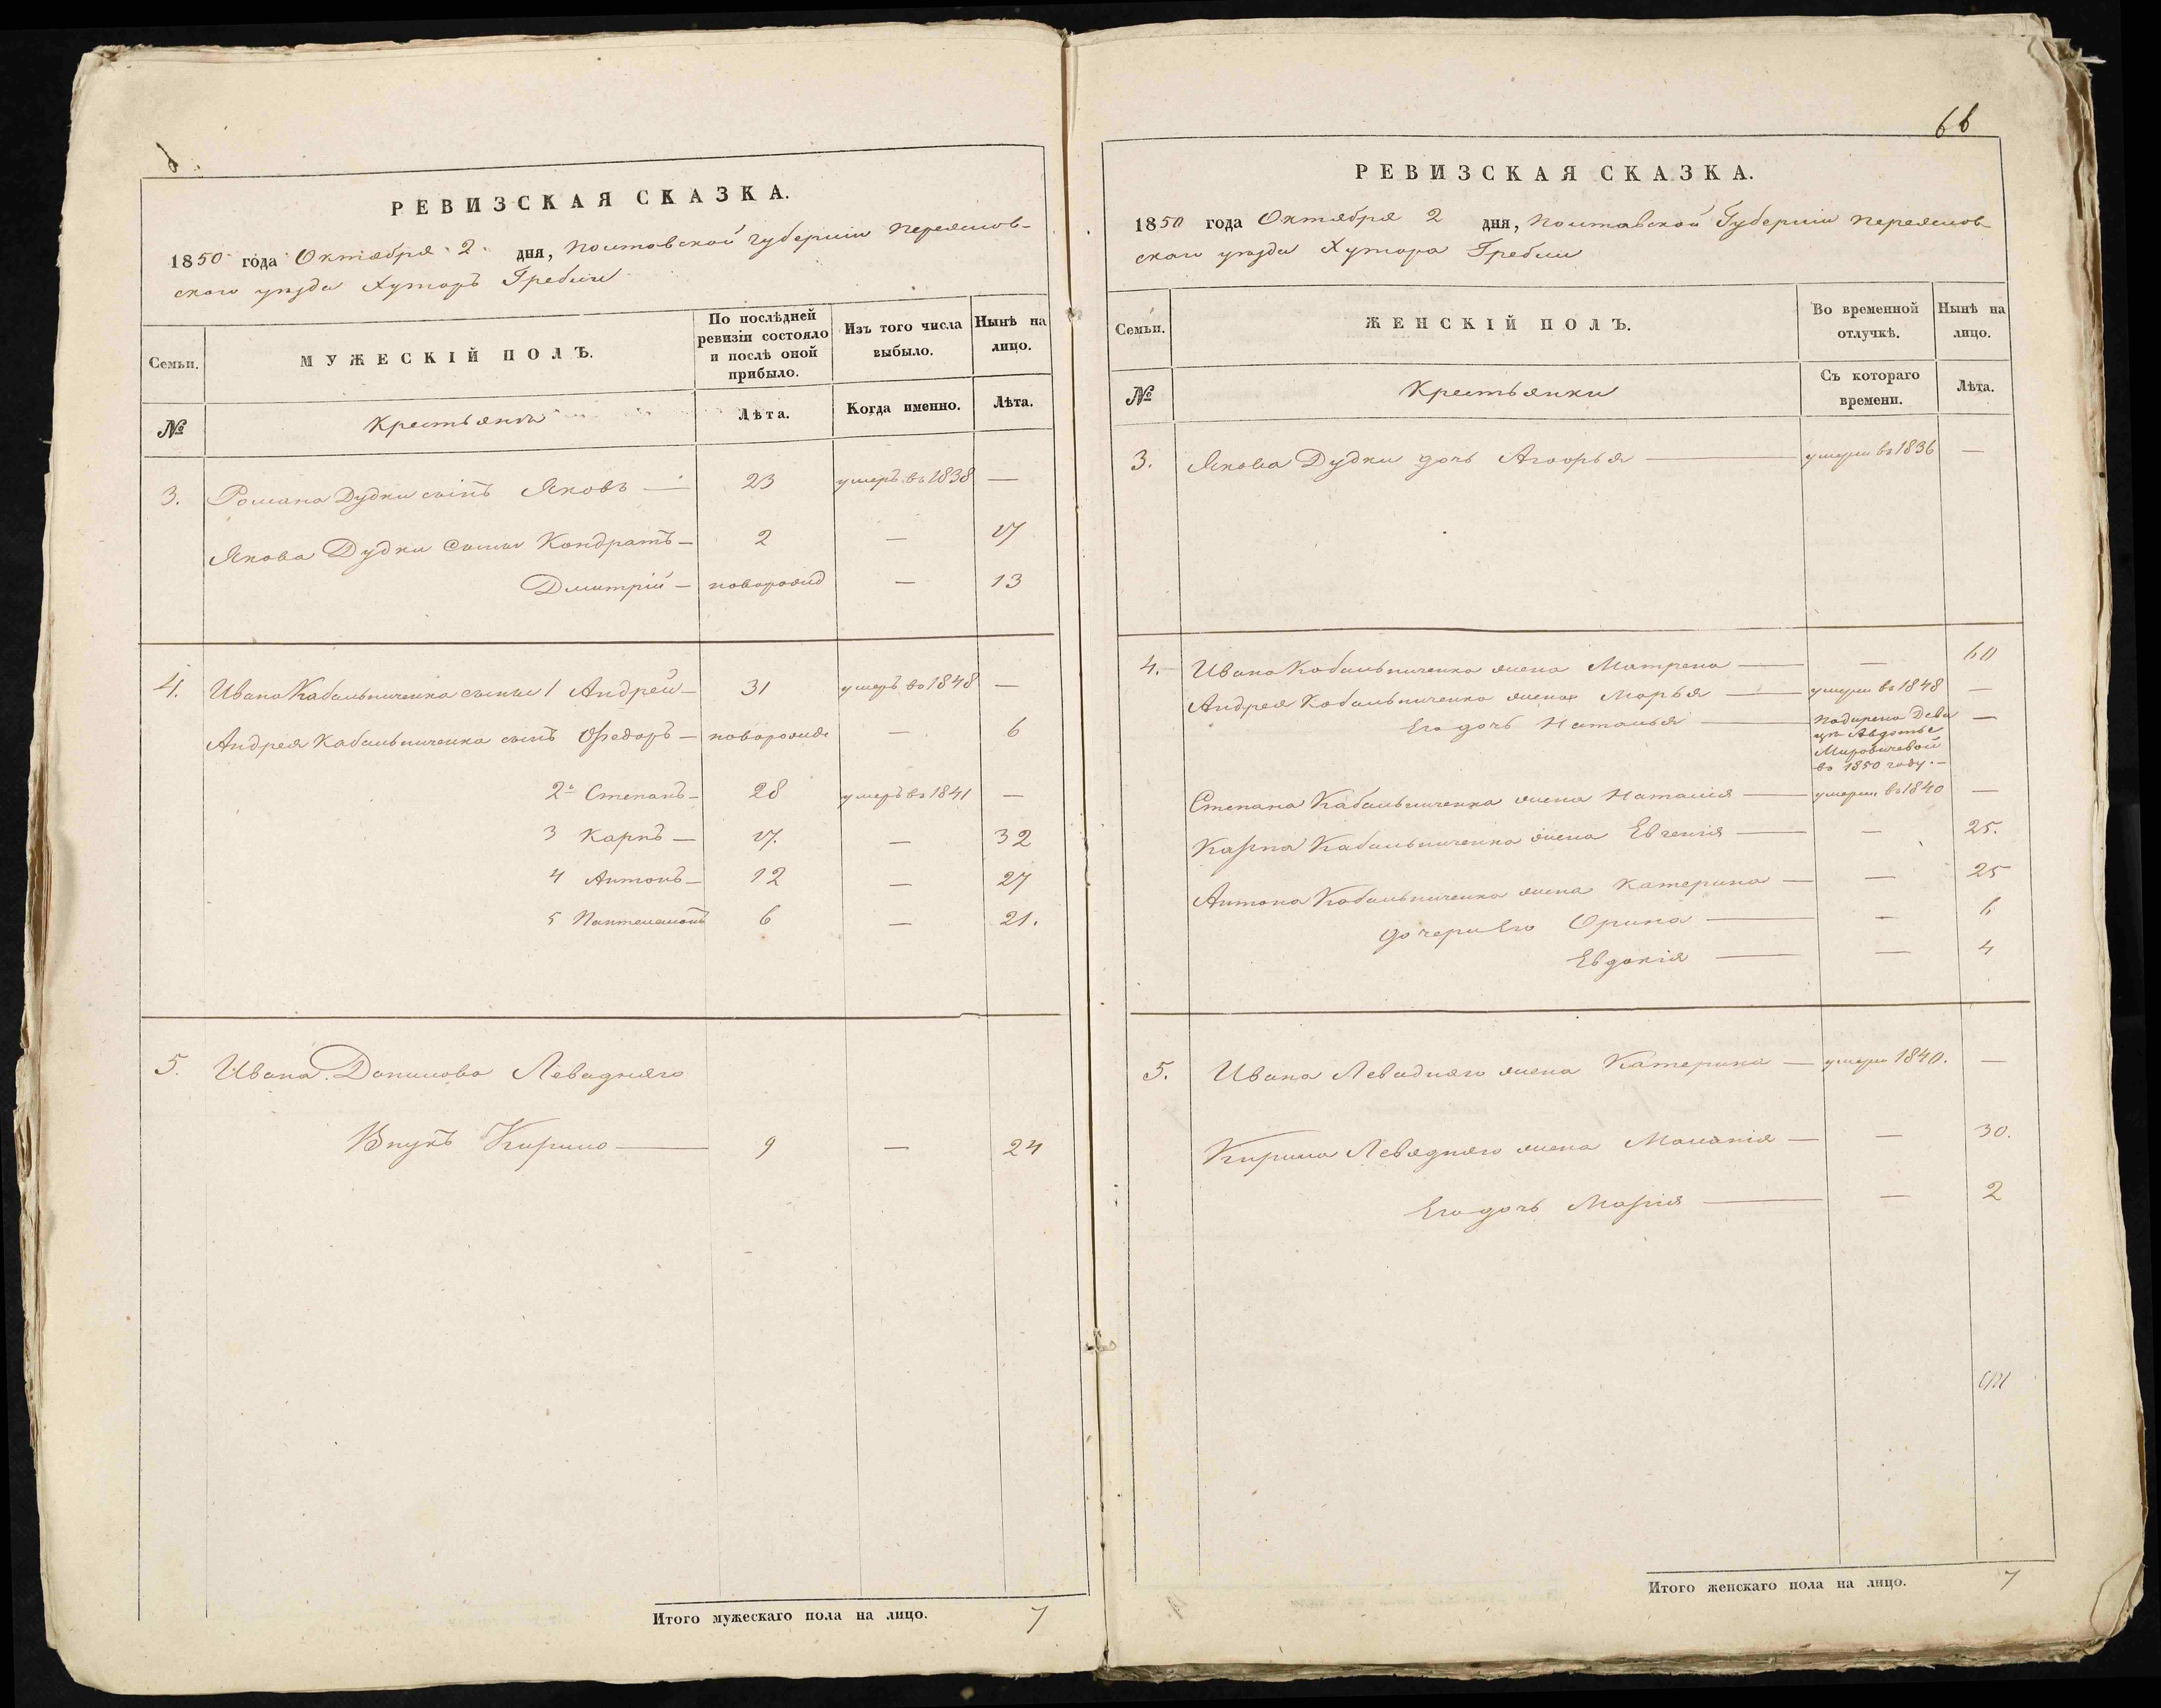 РЕВИЗСКАЯ СКАЗКА.
1850 года Октября 2 дня, Полтавской губернии Переяслов-
скаго уезда Хуторъ Гребли
Семьи.
МУЖЕСКІЙ ПОЛЪ.
По послѣдней ревизіи состояло и послѣ оной прибыло.
Изъ того числа выбыло.
Нынѣ на лицо.
№
Крестьянъ
Лѣта.
Когда именно.
Лѣта.
3. Романа Дудки сынъ Яковъ — 23 умеръ въ 1838 —
Якова Дудки сыны Кондратъ — 2 — 17
Дмитрій — новорожд — 13
4. Ивана Кабальниченка сыны 1 Андрей — 31 умеръ въ 1848 —
Андрея Кабальниченка сынъ Федоръ — новорожде — 6
2й Степанъ — 28 умеръ въ 1841 —
3 Карпъ — 17. — 32
4 Антонъ — 12 — 27
5 Пантелемонъ 6 — 21.
5. Ивана Данилова Леваднаго
Внукъ Кирило — 9 — 24
Итого мужескаго пола на лицо. 7
66
РЕВИЗСКАЯ СКАЗКА.
1850 года Октября 2 дня, Полтавской Губерніи Переяслов-
скаго уезда Хутора Гребли
Семьи.
ЖЕНСКІЙ ПОЛЪ.
Во временной отлучкѣ.
Нынѣ на лицо.
№
Крестьянки
Съ котораго времени.
Лѣта.
3. Якова Дудки дочь — умерла въ 1836 —
4. Ивана Кабальниченка жена Матрена — — 60
Андрея Кабальниченка жена Марья — умерла въ 1848 —
Его дочь Наталья — Подарена Деви —
це Авдотье
Мировичевой
въ 1850 году. —
Степана Кабальниченка жена Наталія — умерла въ 1840 —
Карпа Кабальниченка жена Евгенія — — 25.
Антона Кабальниченка жена Катерина — — 25
дочери Его Орина — — 6
Евдокія — — 4
5. Ивана Леваднаго жена Катерина — умерла 1840. —
Кирила Леваднаго жена Маланія — — 30.
Его дочь Марія — — 2
Итого женскаго пола на лицо. 7